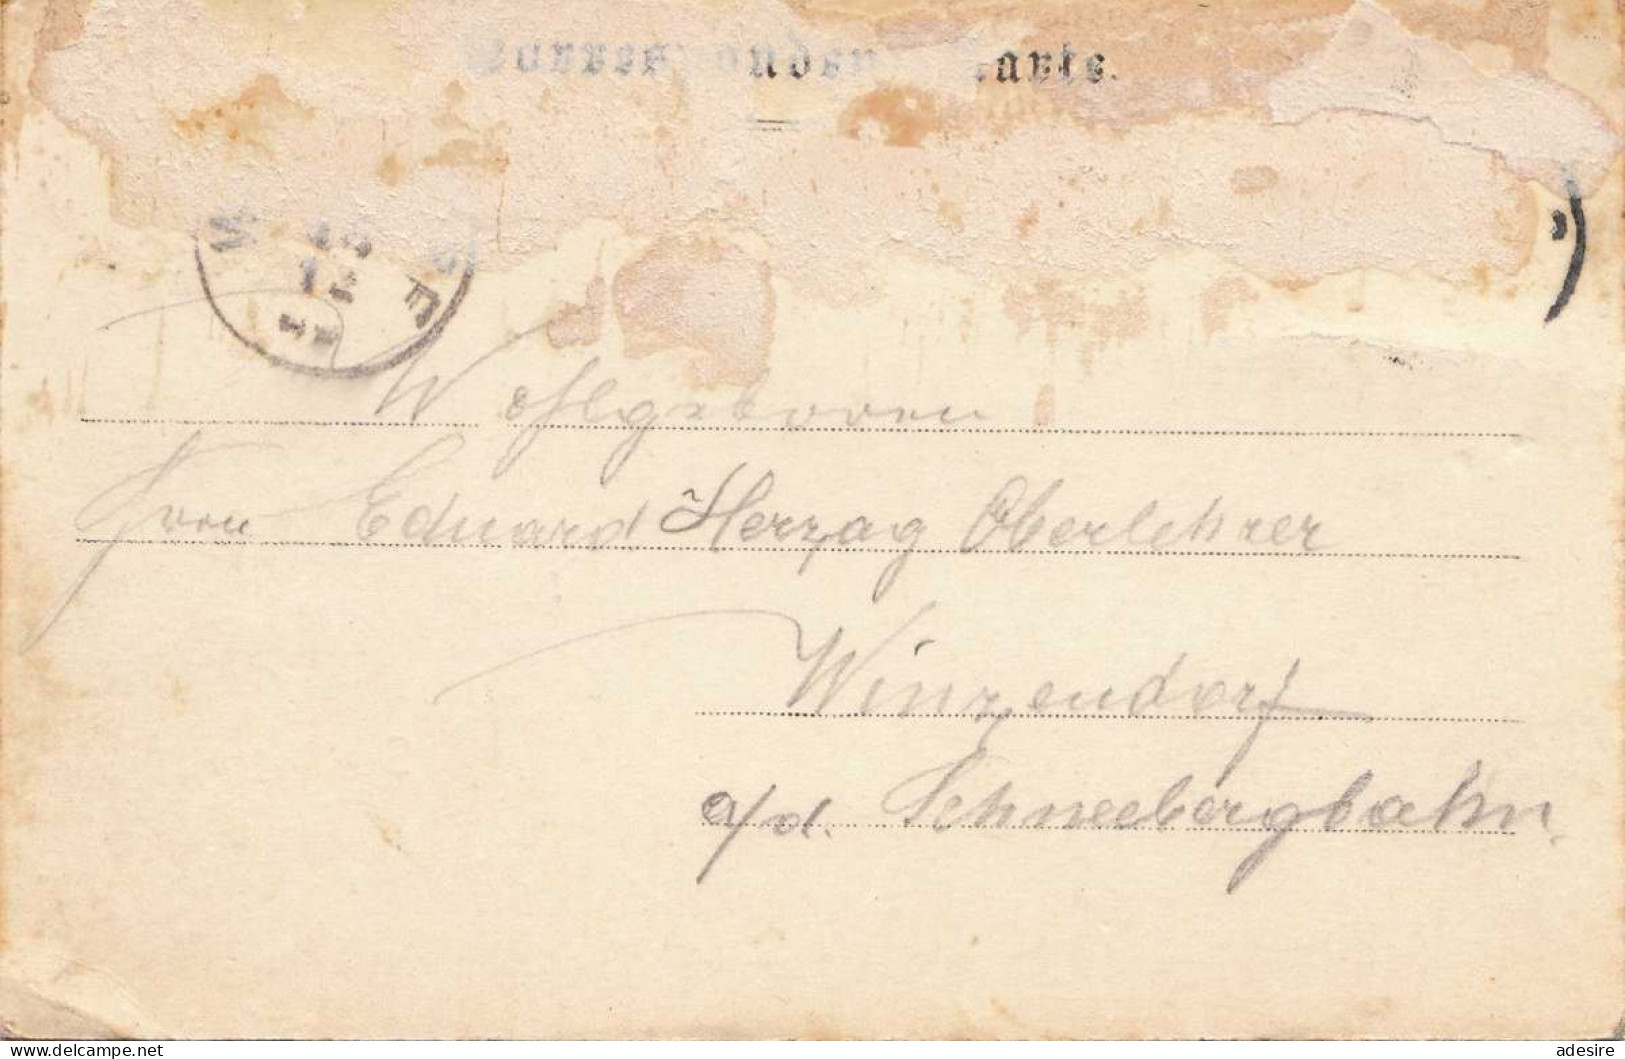 Correspondenz-Karte.
Wohlgeboren
Herrn Eduard Herzog Oberlehrer
Winzendorf
a/d. Schneebergbahn.
www.delcampe.net
adesire